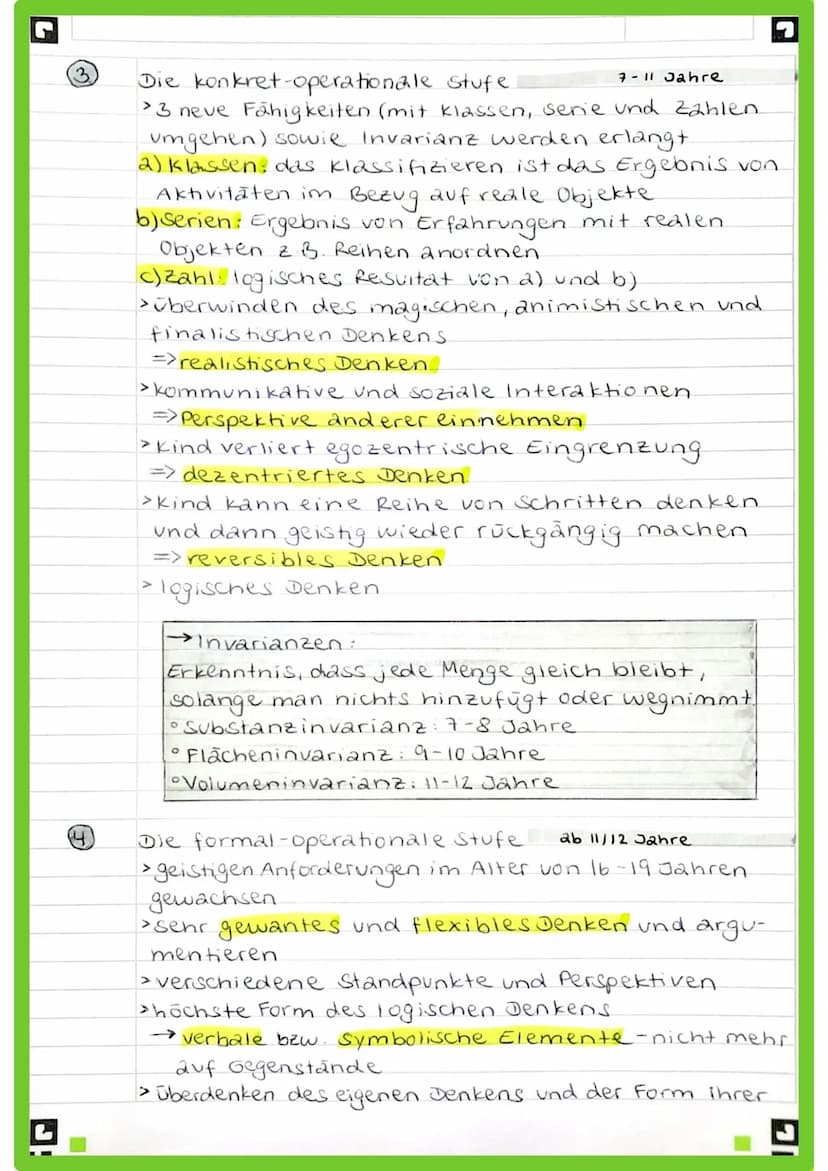 3 Die konkret-operationale Stufe 7-11 Jahre
> 3 neue Fähigkeiten (mit Klassen, Serie und Zahlen
umgehen) sowie Invarianz werden erlangt
a) Klassen: das Klassifizieren ist das Ergebnis von
Aktivitäten im Bezug auf reale Objekte
b) Serien: Ergebnis von Erfahrungen mit realen
Objekten z B. Reihen anordnen
c) Zahl: logisches Resultat von a) und b)
> überwinden des magischen, animistischen und
finalistischen Denkens
=> realistisches Denken
> kommunikative und soziale Interaktionen
=> Perspektive anderer einnehmen
> Kind verliert egozentrische Eingrenzung
=> dezentriertes Denken
> Kind kann eine Reihe von Schritten denken
und dann geistig wieder rückgängig machen
=> reversibles Denken
> logisches Denken
→ Invarianzen:
Erkenntnis, dass jede Menge gleich bleibt,
solange man nichts hinzufügt oder wegnimmt.
° Substanzinvarianz: 7-8 Jahre
° Flächeninvarianz: 9-10 Jahre
° Volumeninvarianz: 11-12 Jahre
4 Die formal-operationale Stufe ab 11/12 Jahre
> geistigen Anforderungen im Alter von 16-19 Jahren
gewachsen
> sehr gewantes und flexibles Denken und argu-
mentieren
> verschiedene Standpunkte und Perspektiven
> höchste Form des logischen Denkens
→ verbale bzw. symbolische Elemente - nicht mehr
auf Gegenstände
> Überdenken des eigenen Denkens und der Form ihrer